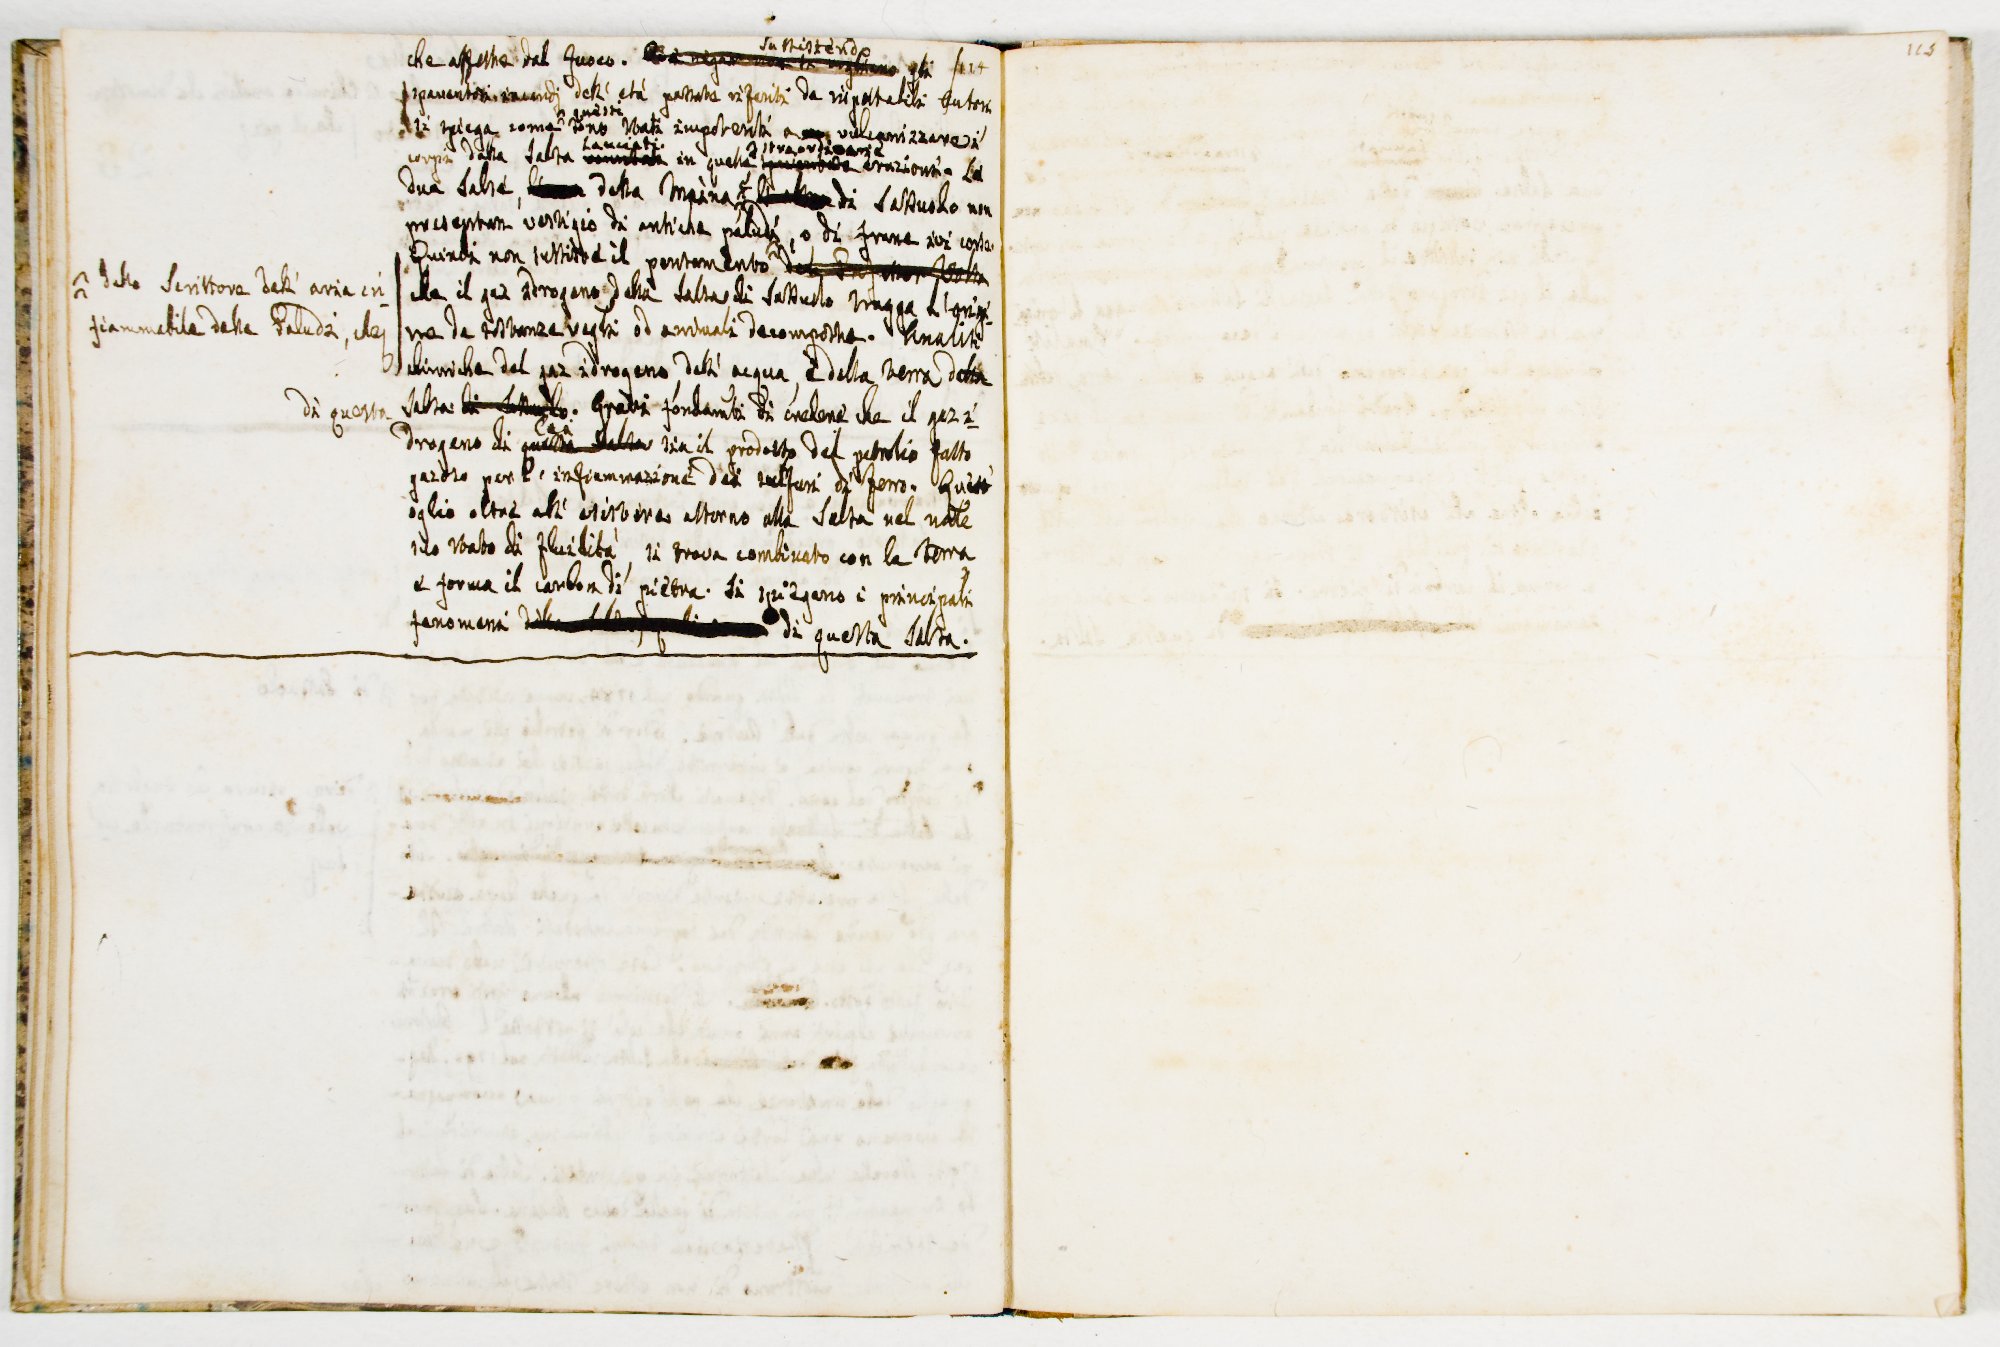 114
115
sussistendo
che affette dal fuoco. gli
spaventosi incendj dell' età passate riferiti da rispettabili Autori
questi
si spiega come sono stati impotenti a vulcanizzare i
lanciati straordinarie
corpi dalla Salsa in quelle eruzioni. Le
due Salse, della Maina e di Sassuolo non
presentan vestigio di antiche paludi, o di frane ivi corse.
Quindi non sussiste il pensamento
dello Scrittore dell' aria in-
fiammabile delle Paludi, che
che il gaz idrogeno della Salsa di Sassuolo tragga l'origi-
ne da sostanze vegtli od animali decomposte. Analisi
chimiche del gaz idrogeno, dell' acqua, e della terra della
di questa
Salsa. Gravi fondamti di credere che il gaz i-
drogeno di sia il prodotto del petrolio fatto
gazoso per l'infiammazione dei sulfuri di ferro. Quest'
oglio oltre all' esistere attorno alla Salsa nel natle
suo stato di fluidità, si trova combinato con la terra
e forma il carbon di pietra. Si spiegano i principali
fenomeni di questa Salsa.